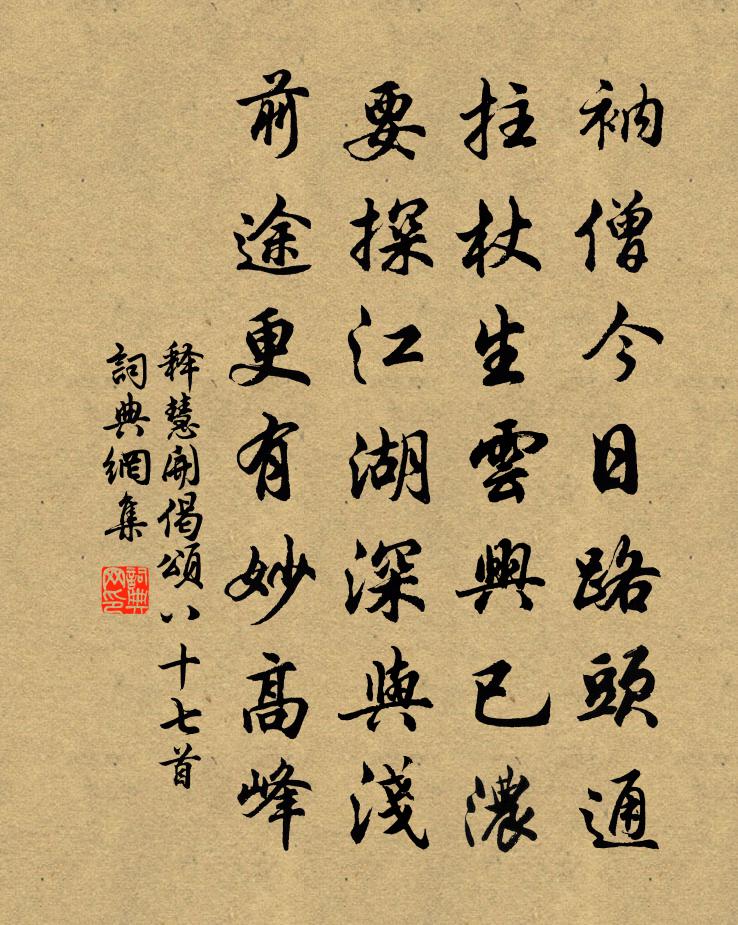 衲僧今日路頭通
拄杖生雲興已濃
要探江湖深與淺
前途更有妙高峰
释慧開偈頌八十七首
詞典網集
詞典
网印